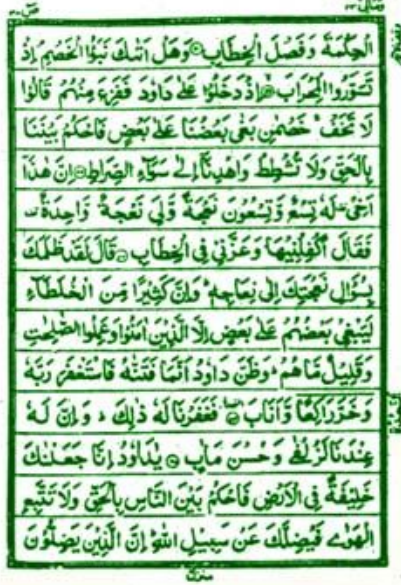 ص ٣٨
ومالی ٢٣
الْحِكْمَةَ وَفَصْلَ الْخِطَابِ ۝ وَهَلْ اَتٰىكَ نَبَؤُا الْخَصْمِ اِذْ
تَسَوَّرُوا الْمِحْرَابَ ۝ اِذْ دَخَلُوْا عَلٰى دَاوٗدَ فَفَزِعَ مِنْهُمْ قَالُوْا
لَا تَخَفْ خَصْمٰنِ بَغٰى بَعْضُنَا عَلٰى بَعْضٍ فَاحْكُمْ بَيْنَنَا
بِالْحَقِّ وَلَا تُشْطِطْ وَاهْدِنَآ اِلٰى سَوَآءِ الصِّرَاطِ ۝ اِنَّ هٰذَآ
اَخِيْ لَهٗ تِسْعٌ وَّتِسْعُوْنَ نَعْجَةً وَّلِيَ نَعْجَةٌ وَّاحِدَةٌ
فَقَالَ اَكْفِلْنِيْهَا وَعَزَّنِيْ فِي الْخِطَابِ ۝ قَالَ لَقَدْ ظَلَمَكَ
بِسُؤَالِ نَعْجَتِكَ اِلٰى نِعَاجِهٖ وَاِنَّ كَثِيْرًا مِّنَ الْخُلَطَآءِ
لَيَبْغِيْ بَعْضُهُمْ عَلٰى بَعْضٍ اِلَّا الَّذِيْنَ اٰمَنُوْا وَعَمِلُوا الصّٰلِحٰتِ
وَقَلِيْلٌ مَّا هُمْ وَظَنَّ دَاوٗدُ اَنَّمَا فَتَنّٰهُ فَاسْتَغْفَرَ رَبَّهٗ
وَخَرَّ رَاكِعًا وَّاَنَابَ ۝ فَغَفَرْنَا لَهٗ ذٰلِكَ وَاِنَّ لَهٗ
عِنْدَنَا لَزُلْفٰى وَحُسْنَ مَاٰبٍ ۝ يٰدَاوٗدُ اِنَّا جَعَلْنٰكَ
خَلِيْفَةً فِي الْاَرْضِ فَاحْكُمْ بَيْنَ النَّاسِ بِالْحَقِّ وَلَا تَتَّبِعِ
الْهَوٰى فَيُضِلَّكَ عَنْ سَبِيْلِ اللّٰهِ اِنَّ الَّذِيْنَ يَضِلُّوْنَ